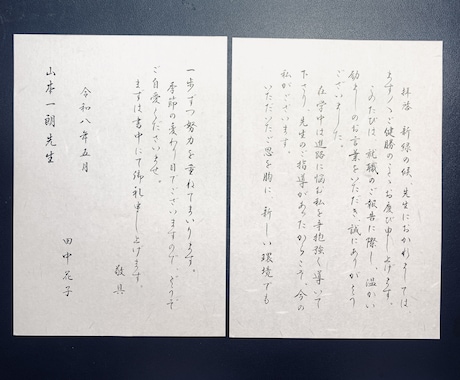 拝啓 新緑の候、先生におかれましては
ますますご健勝のこととお慶び申し上げます。
このたびは、就職のご報告に際し、温かい
励ましのお言葉をいただき、誠にありがとう
ございました。
在学中は進路に悩む私を手抱強く導いて
下さり、先生のご指導があったからこそ、今の
私がございます。
いただいたご恩を胸に、新しい環境でも
一歩ずつ努力を重ねてまいります。
季節の変わり目でございますので、どうぞ
ご自愛くださいませ。
まずは書中にて御礼申し上げます。
敬具
令和八年五月
田中花子
山本一朗先生